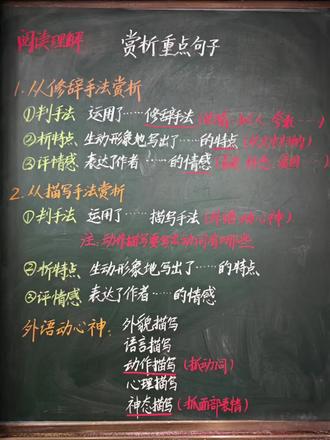 阅读理解 赏析重点句子
1.从修辞手法赏析
①判手法 运用了……修辞手法(比喻、拟人、夸张…)
②析特点、生动形象地写出了……的特点
③评情感 表达了作者……的情感
2.从描写手法赏析
①判手法 运用了……描写手法(外语动心神).
注:动作描写要写出动词有哪些
②析特点、生动形象地写出了……的特点、
③评情感 表达了作者……的情感
外语动心神: 外貌描写
语言描写
动作描写(抓动词)
心理描写
神态描写(抓面部表情)